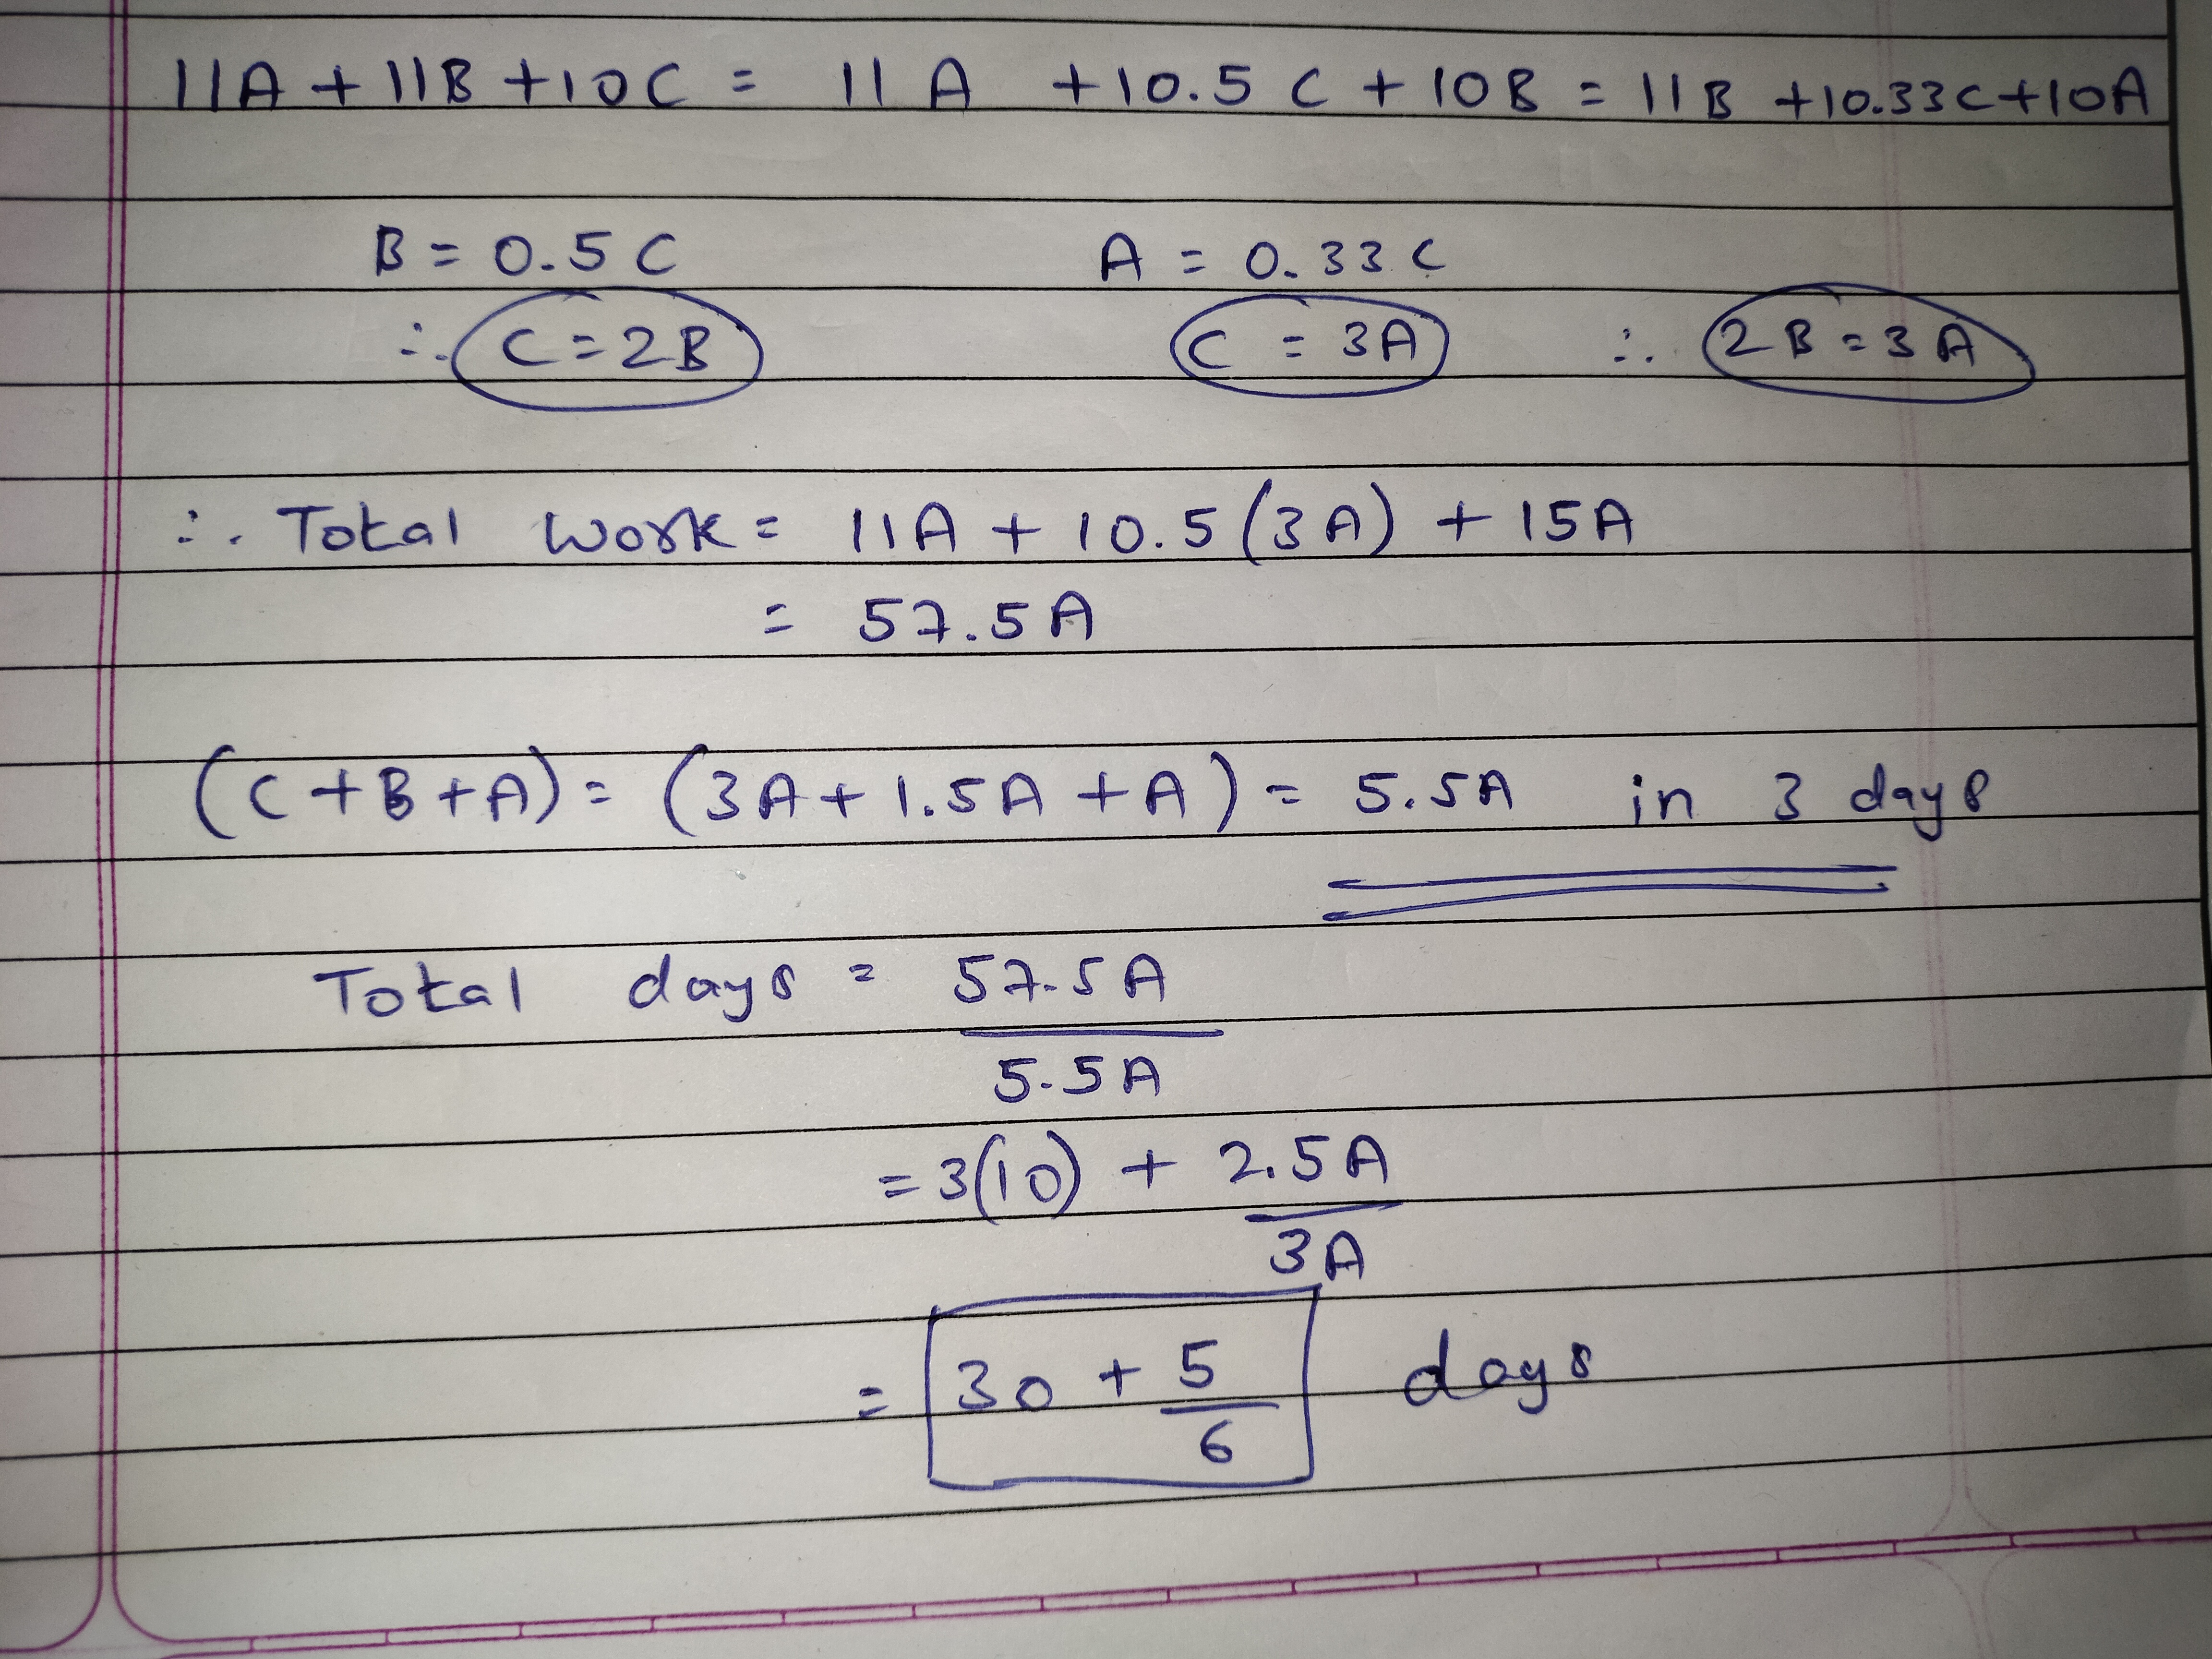 11A + 11B + 10C = 11A + 10.5C + 10B = 11B + 10.33C + 10A
B = 0.5C A = 0.33C
∴ C = 2B C = 3A ∴ 2B = 3A
∴ Total work = 11A + 10.5(3A) + 15A
= 57.5A
(C + B + A) = (3A + 1.5A + A) = 5.5A in 3 days
Total days = 57.5A
5.5A
= 3(10) + 2.5A
3A
= 30 + 5 days
6